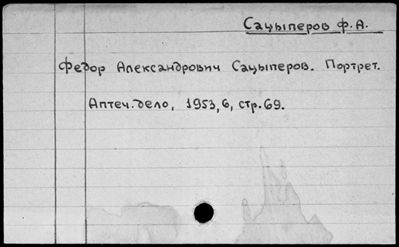 Сацыперов Ф.А.
Федор Александрович Сацыперов. Портрет.
Аптеч.дело, 1953, 6, стр.69.